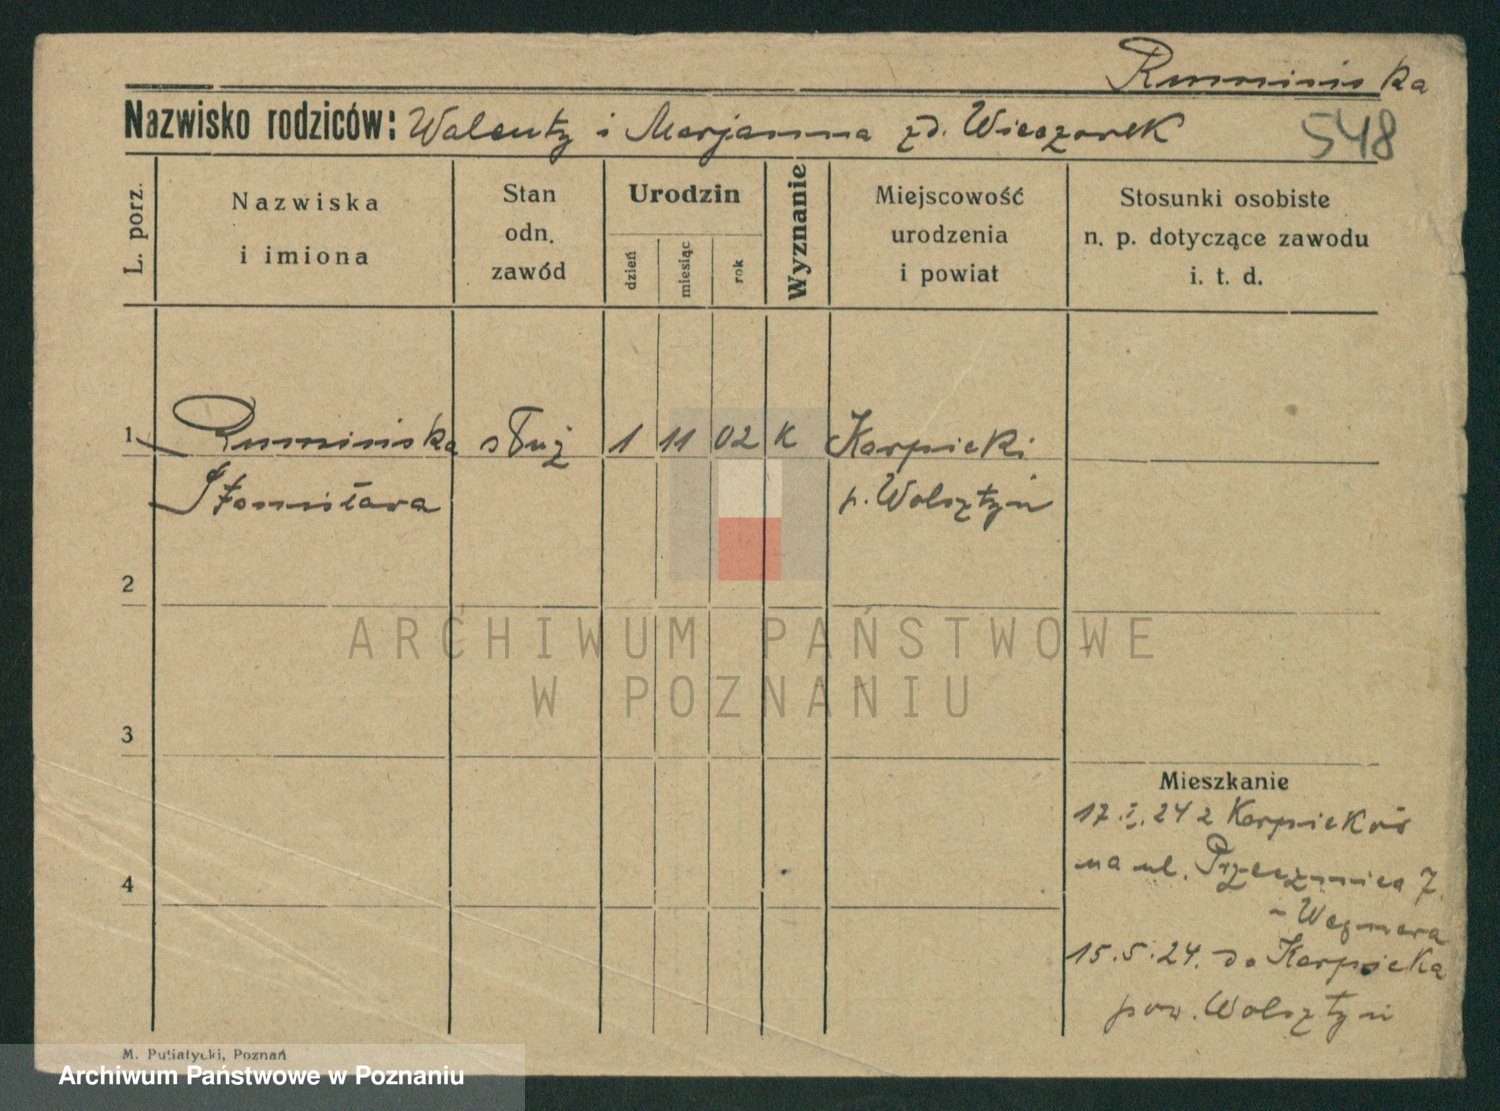 Ruminiska
Nazwisko rodziców: Walenty i Marjanna zd. Wieczorek
548
L. porz.
Nazwiska
i imiona
Stan
odn.
zawód
Urodzin
dzień
miesiąc
rok
Wyznanie
Miejscowość
urodzenia
i powiat
Stosunki osobiste
n. p. dotyczące zawodu
i. t. d.
1 Ruminiska służ 1 11 02 K Karpicki
Stanisława p. Wolsztyn
2
ARCHIWUM PAŃSTWOWE
W POZNANIU
3
Mieszkanie
17.I.24 z
na ul. Przecznica 7
- Wegnera
4
15.5.24. do Karpicka
pow. Wolsztyn
M. Putiatycki, Poznań
Archiwum Państwowe w Poznaniu